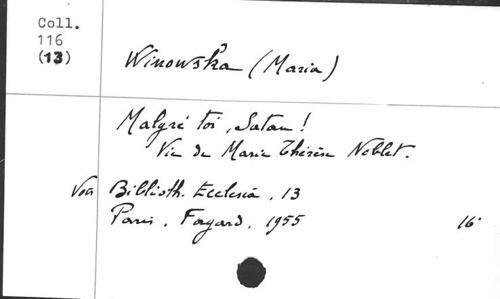 Coll.
116
(13)
Winowska (Maria)
Malgré toi, Satan!
Vie de Marie Thérèse Noblet.
Voir Biblioth. Ecclesia, 13
Paris, Fayard, 1955 16°